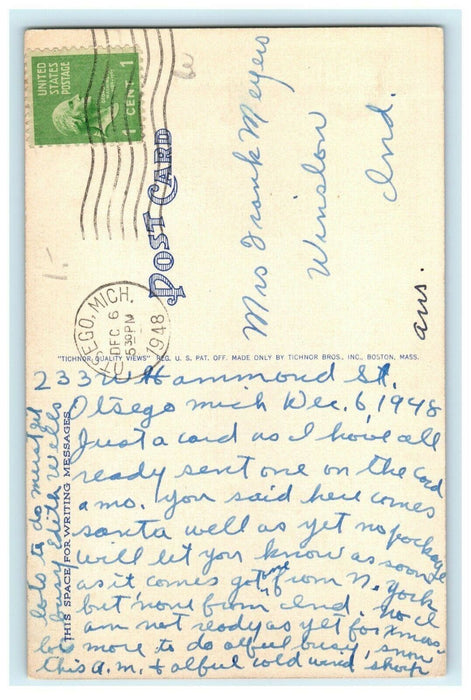 UNITED
STATES
POSTAGE
1 CENT 1
OTSEGO, MICH.
DEC 6
5 30 PM
1948
POST CARD
Mrs Frank Meyers
Winslow
Ind.
ans.
"TICHNOR QUALITY VIEWS" REG. U. S. PAT. OFF. MADE ONLY BY TICHNOR BROS., INC., BOSTON, MASS.
THIS SPACE FOR WRITING MESSAGES
233 W Hammond St.
Otsego mich Dec. 6, 1948
Just a card as I have all
ready sent one on the card
a mo. you said here comes
santa well as yet no package
will let you know as soon
as it comes got one from N. York
but none from Ind. no I
am not ready as yet for xmas
lots more to do alful busy, snow
this a.m. & alful cold wind sharp
lots to do must get
busy Edith Wells